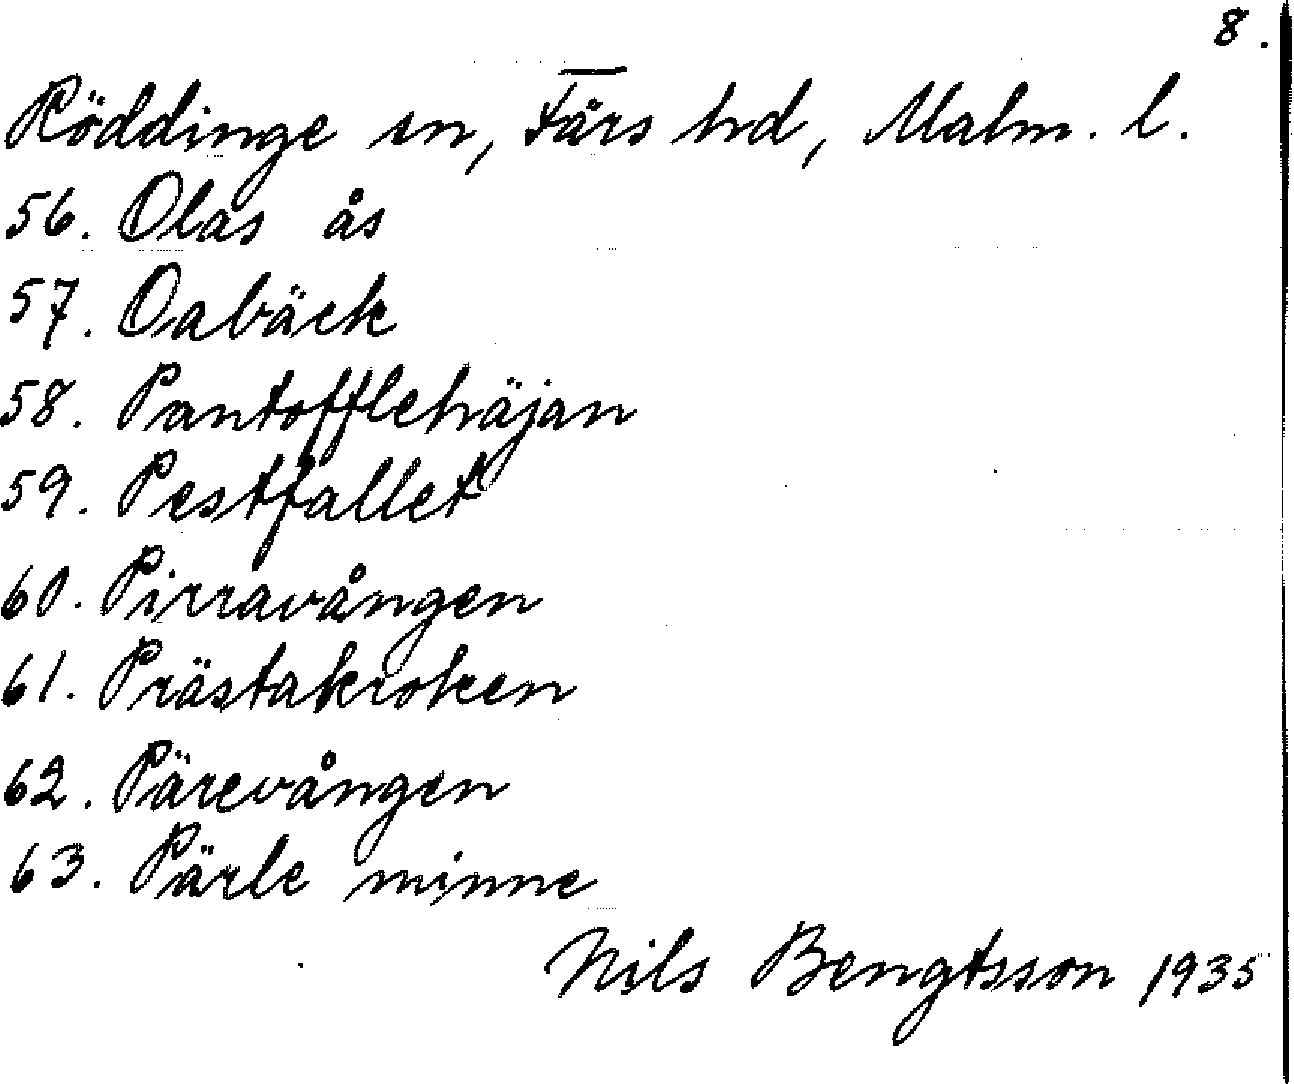 8.
Röddinge sn, Färs hd, Malm. l.
56. Olas ås
57. Oabäck
58. Pantofflehäjan
59. Pestfallet
60. Pirravången
61. Prästakroken
62. Pärevången
63. Pärle minne
Nils Bengtsson 1935